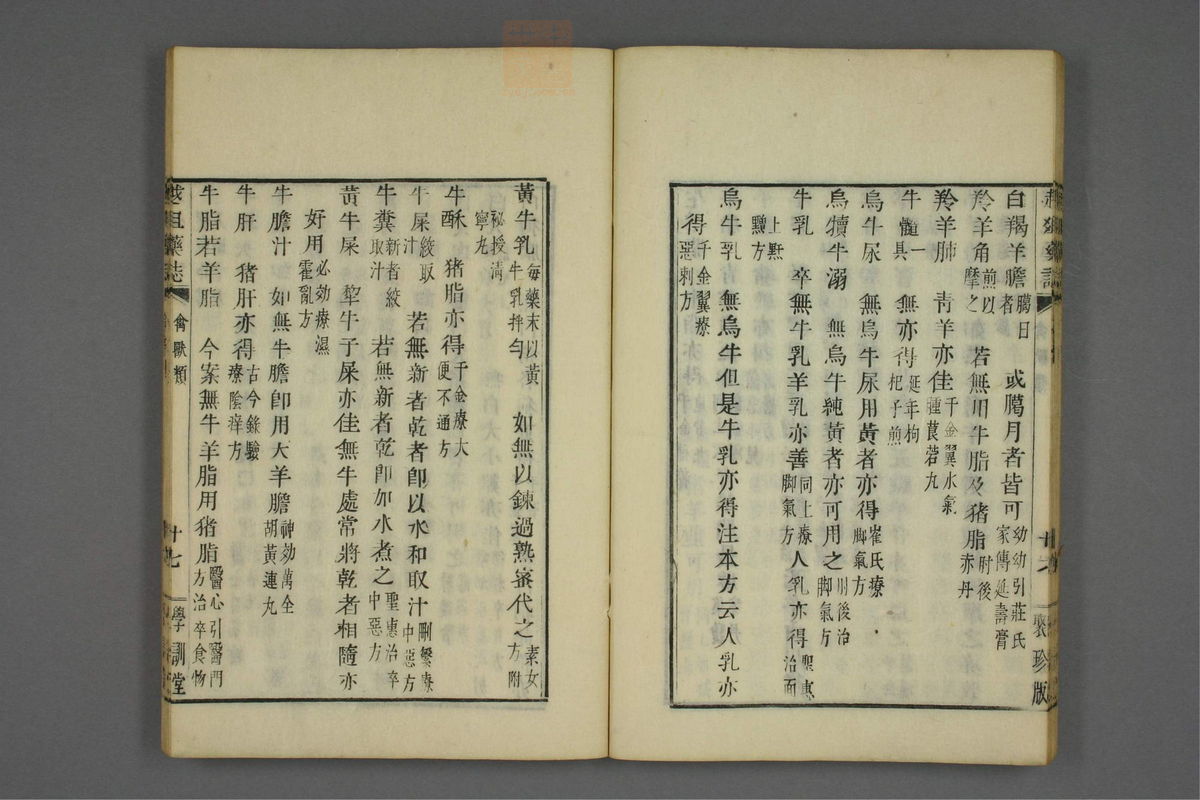 白羯羊膽臈日者 或臈月者皆可幼幼引莊氏家傳延壽膏
羚羊角煎以摩之 若無用牛脂及猪脂肘後赤丹
羚羊肺 青羊亦佳千金翼水氣腫莨菪丸
牛髓一具 無亦得延年枸杞子煎
烏牛尿 無烏牛尿用黃者亦得崔氏療脚氣方
烏犢牛溺 無烏牛純黃者亦可用之肘後治脚氣方
牛乳 卒無牛乳羊乳亦善同上療脚氣方人乳亦得聖惠治面
上䵟䵳方
烏牛乳 無烏牛但是牛乳亦得注本方云人乳亦
得千金翼療惡刺方
裝珍版
黃牛乳每藥末以黃牛乳拌勻 如無以鍊過熟蜜代之素女方附
祕授清寧丸
牛酥 猪脂亦得千金療大便不通方
牛屎絞取汁 若無新者乾者卽以水和取汁刪繁療中惡方
牛糞新者絞取汁 若無新者乾卽加水煮之聖惠治卒中惡方
黃牛屎 犂牛子屎亦佳無牛處常將乾者相隨亦
好用必効療濕霍亂方
牛膽汁 如無牛膽卽用大羊膽神効萬全胡黃連丸
牛肝 猪肝亦得古今錄驗療陰痒方
牛脂若羊脂 今案無牛羊脂用猪脂醫心引醫門方治卒食物
藥誌
禽獸類
十七
學訓堂